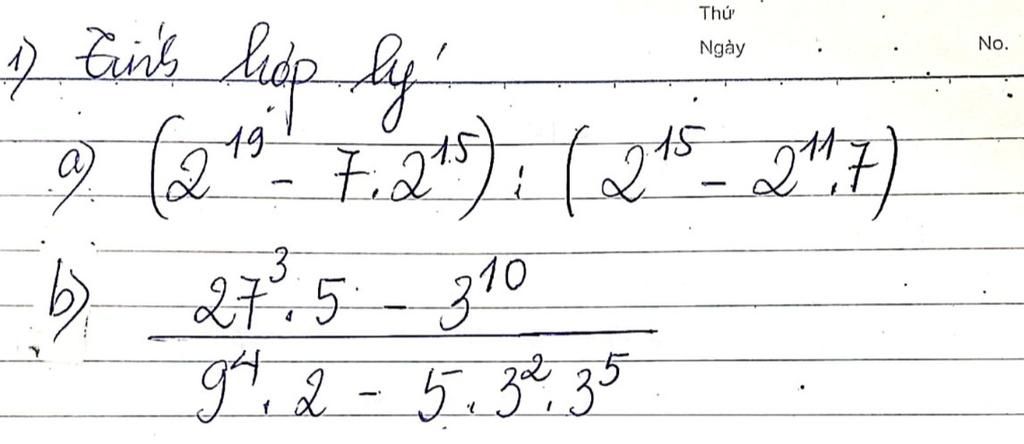 Thứ
Ngày . . No.
1) Tính hợp lý
a) (2^19 - 7.2^15) : (2^15 - 2^11.7)
b) (27^3 . 5 - 3^10) / (9^4 . 2 - 5 . 3^2 . 3^5)